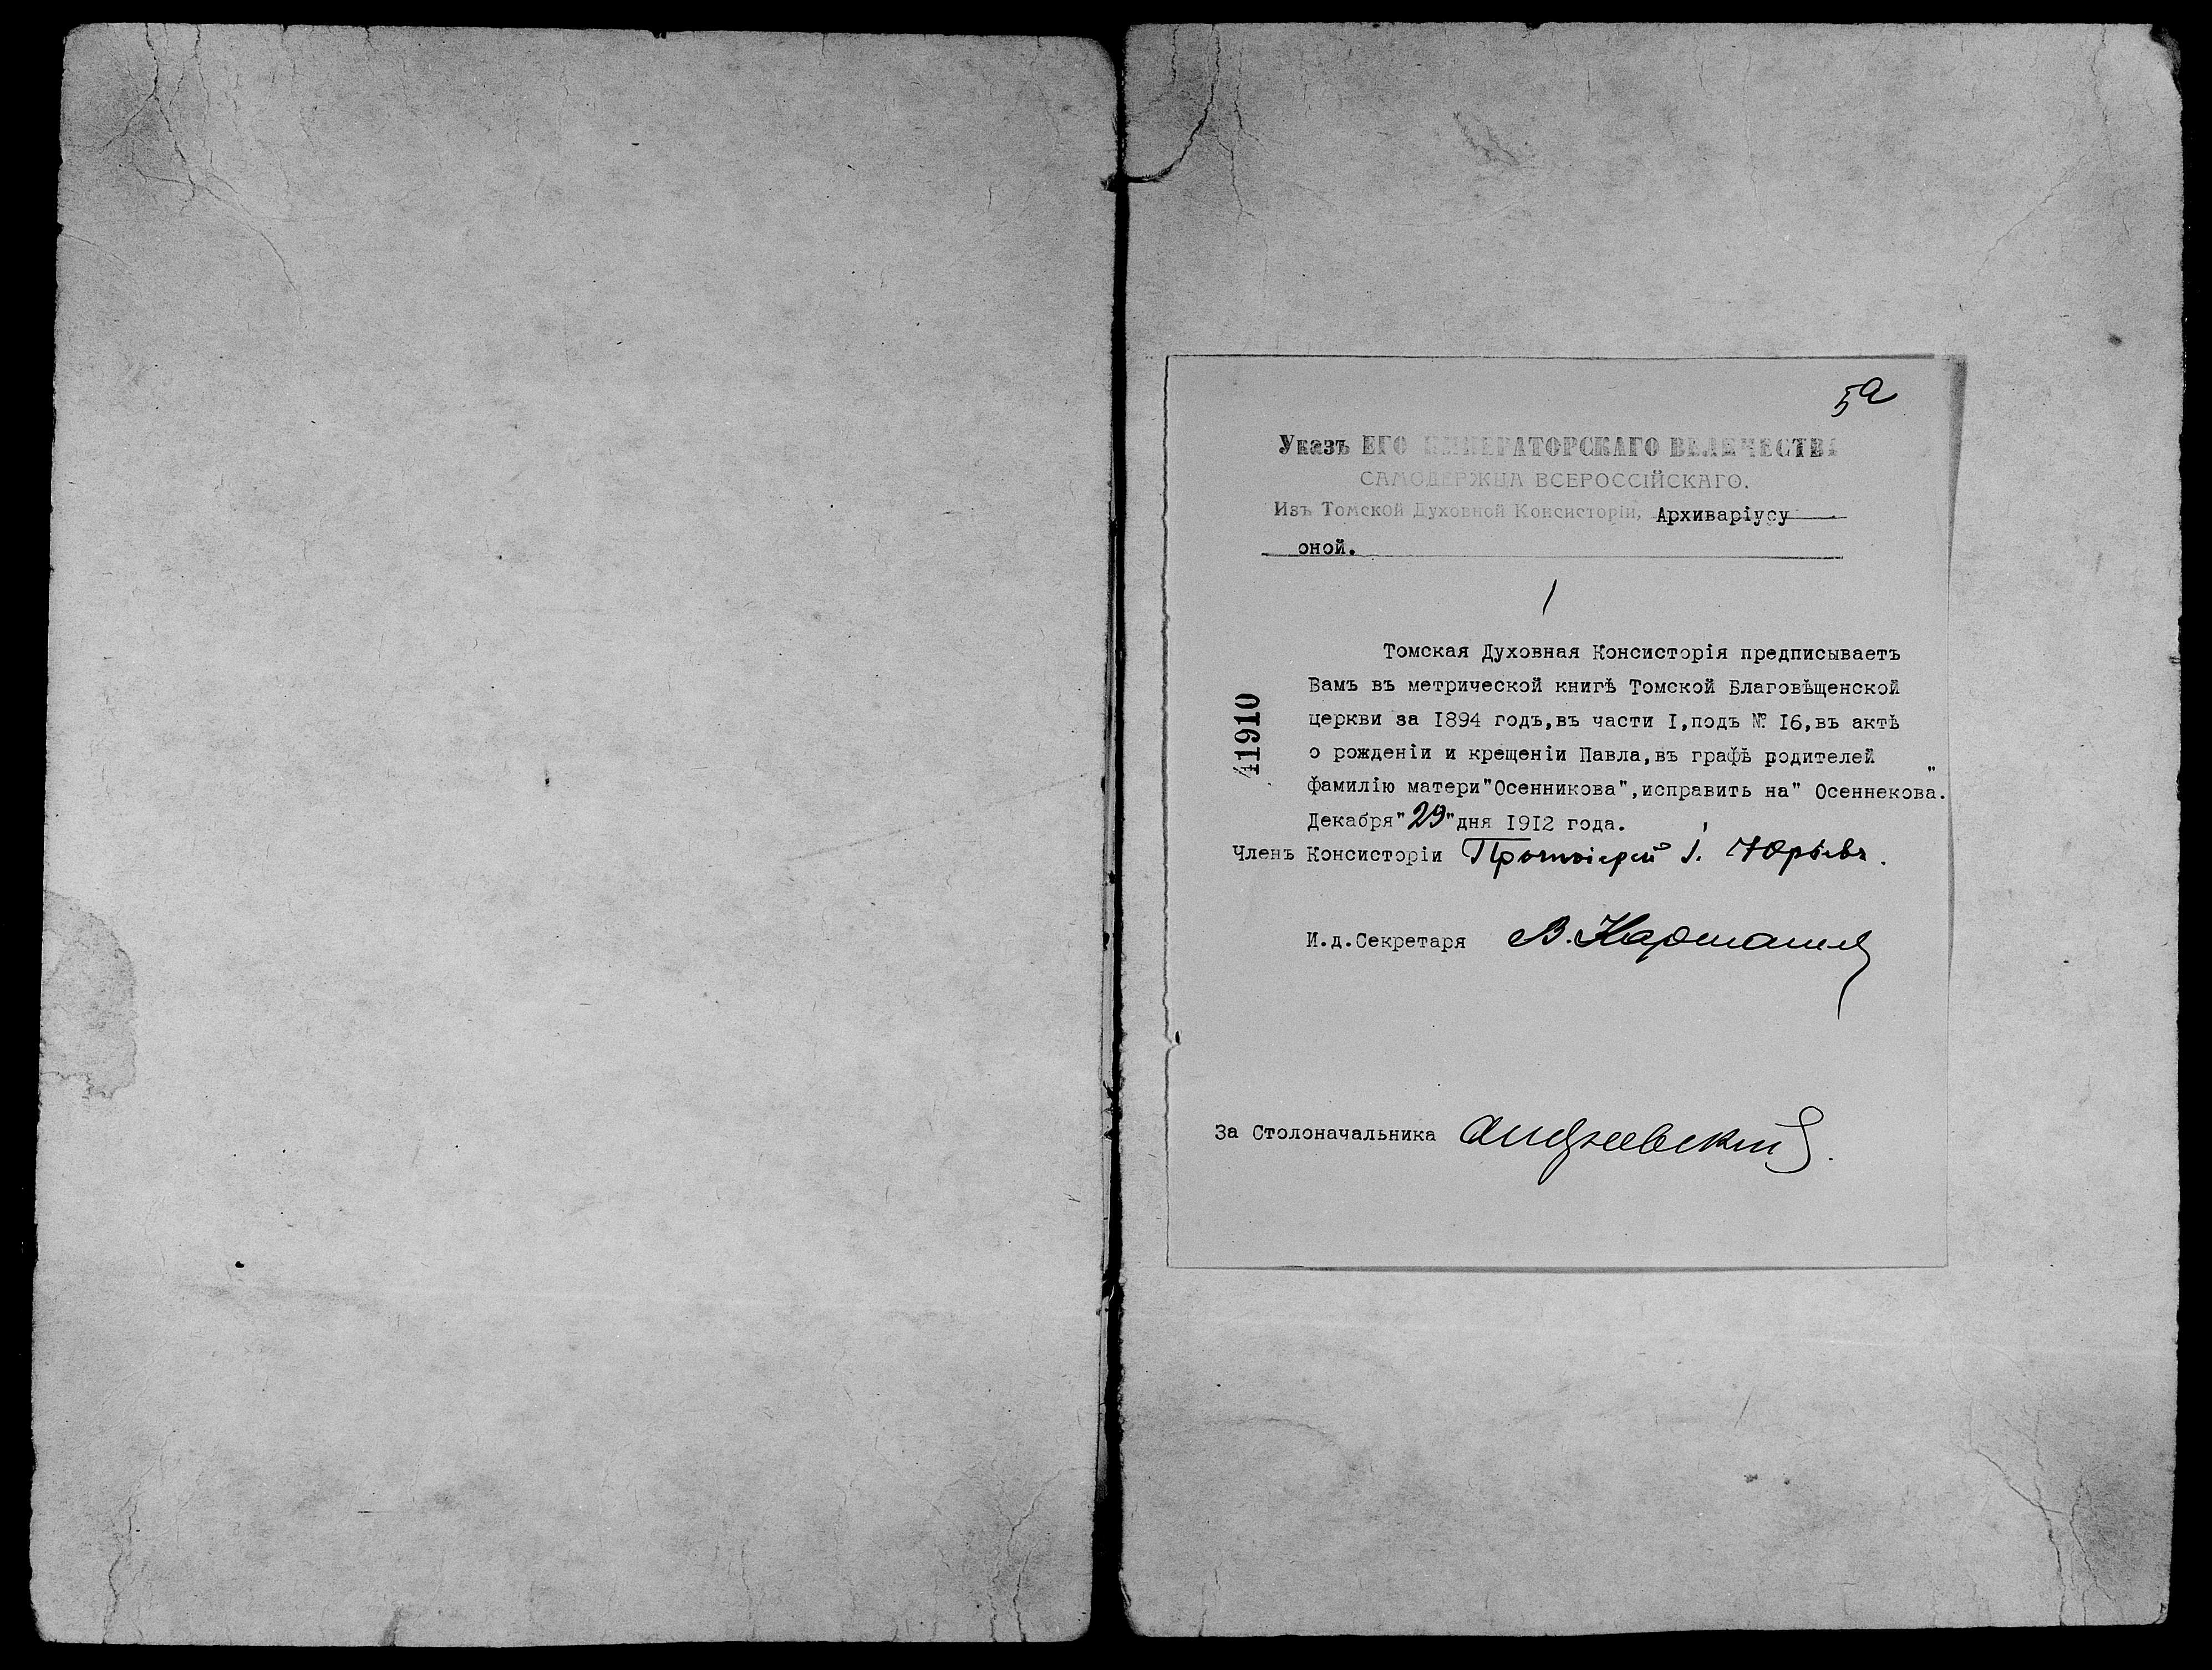 5а
Указъ ЕГО ИМПЕРАТОРСКАГО ВЕЛИЧЕСТВА
САМОДЕРЖЦА ВСЕРОССІЙСКАГО.
Изъ Томской Духовной Консисторіи, Архиваріусу
оной.
Томская Духовная Консисторія предписываетъ
Вамъ въ метрической книгѣ Томской Благовѣщенской
церкви за 1894 годъ,въ части I,подъ № 16,въ актѣ
о рожденіи и крещеніи Павла,въ графѣ родителей
фамилію матери"Осенникова",исправить на" Осеннекова".
Декабря"29"дня 1912 года.
41910
Членъ Консисторіи Протоіерей І. Юрьевъ.
И.д.Секретаря В.
За Столоначальника Андреевскій.